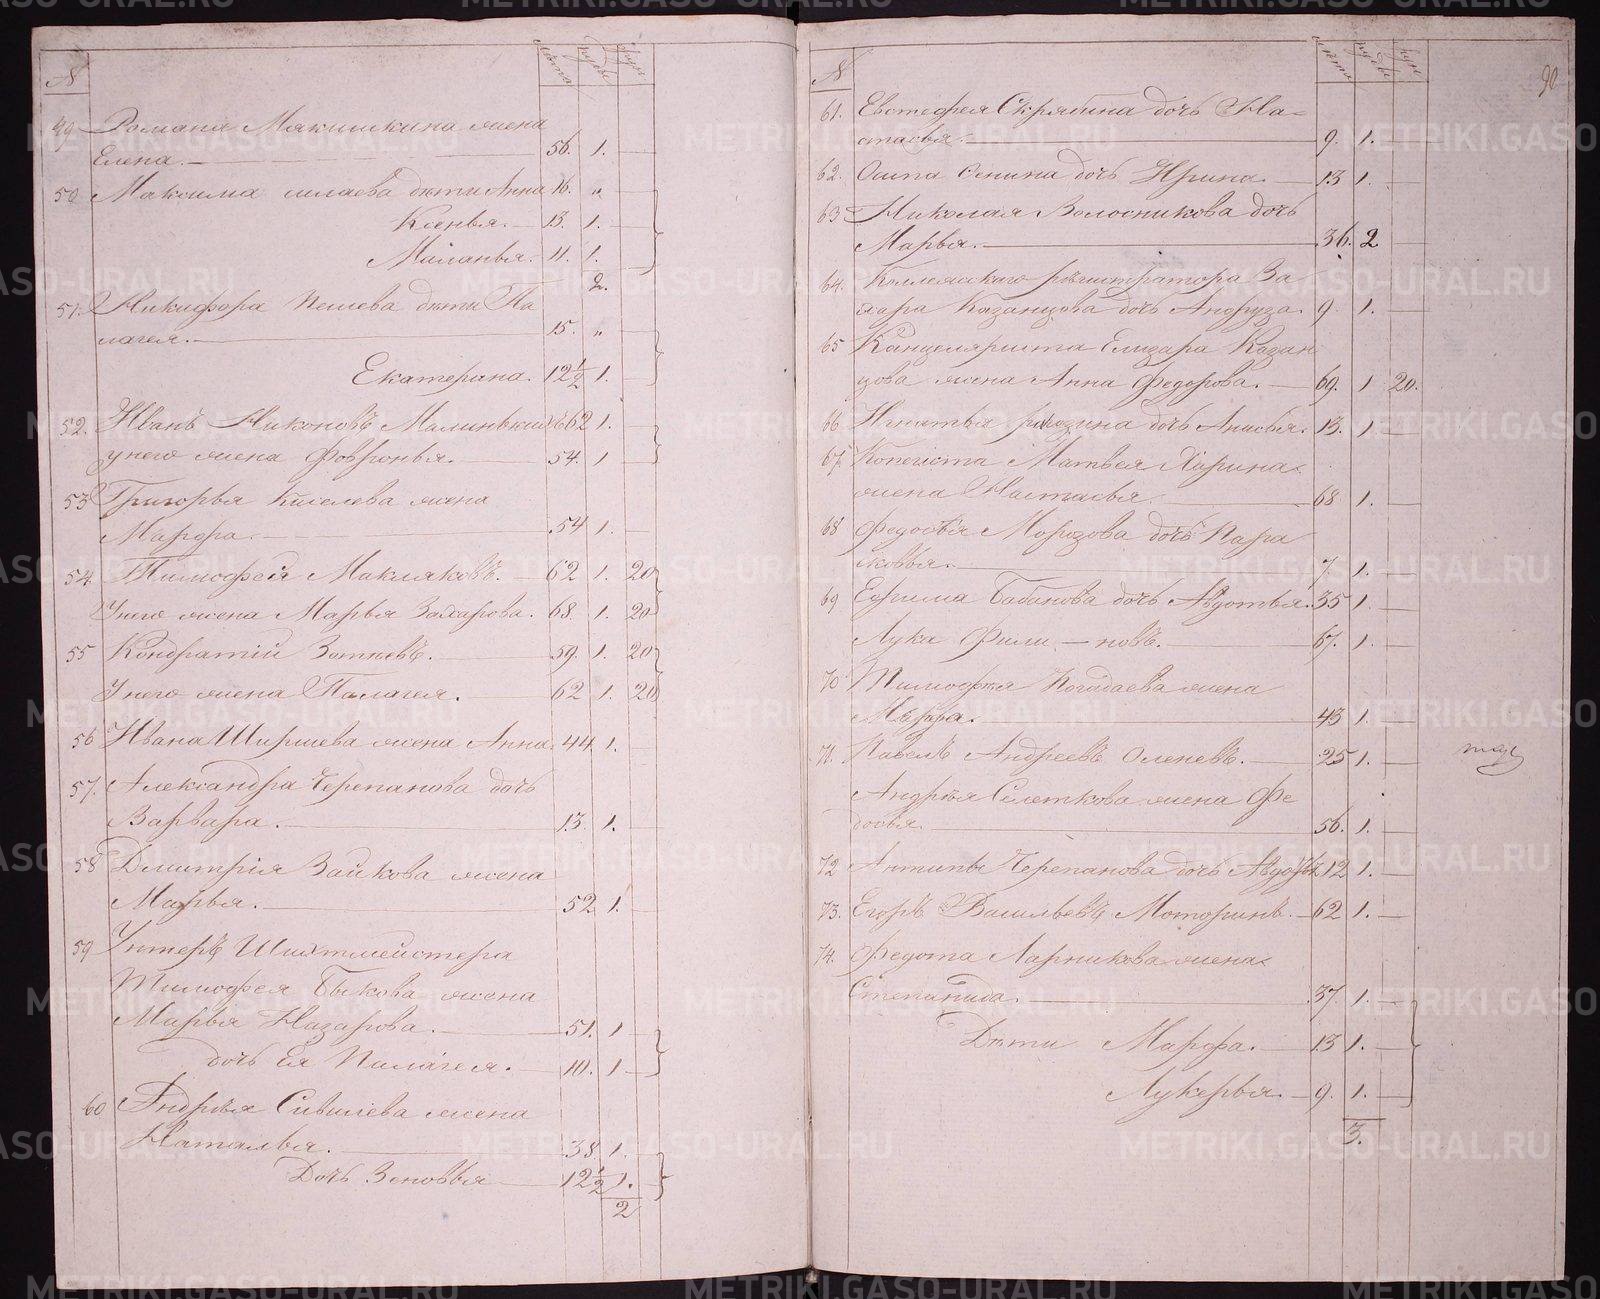 N лѣта пуды фун
49 Романа Мякишкина жена
Елена. — 56. 1. —
50 Максима дѣти Анна 16. "
Ксенья. — 13. 1. —
Миланья. 11. 1. —
2.
51. Никифора Пешева дѣти Па
лагея. — 15. "
Екатерина. 12½ 1. —
52. Иванъ Никоновъ 62 1. —
у него жена Фовронья. — 54. 1 —
53 Григорья Киселева жена
Марфа. — 54 1. —
54. Тимофей Макляковъ. — 62 1. 20
У него жена Марья Захарова. 68. 1. 20
55 Кондратій Зотѣевъ. — 59. 1. 20
У него жена Палагея. — 62 1. 20
56 Ивана Ширшева жена Анна 44. 1. —
57. Александра Черепанова дочь
Варвара. — 13. 1. —
58 Дмитрія Зайкова жена
Марья. — 52 1. —
59 Унтеръ Шихтмейстера
Тимофея Быкова жена
Марья Назарова. — 51. 1 —
дочь Ея Палагея. — 10. 1 —
60 Андрѣя жена
Наталья. — 38 1. —
Дочь Зеновья — 12½ 1. —
2
N лѣта пуды фун
90
61. Евстефея Скрябина дочь На=
стасья. — 9. 1. —
62. Осипа Сенина дочь Ирина. — 13 1. —
63 Николая Волосникова дочь
Марья. — 36. 2 —
64. Коллежскаго регистратора За
хара Казанцова дочь 9. 1. —
65 Канцеляриста Елизара Казан
цова жена Анна Федорова. — 69. 1 20.
66 Игнатья дочь Анисья. 13. 1. —
67. Копеиста Матвея Харина
жена Настасья. — 68 1. —
68 Федосѣя Морозова дочь Пара
сковья. — 7. 1. —
69 Ефима Бабанова дочь Авдотья. 35 1. —
Лука Фили — новъ. — 67. 1. —
70 Тимофѣя Погадаева жена
Марфа. — 43 1. —
71. Павелъ Андреевъ Оленевъ. — 25 1. —
Андрѣя Селеткова жена Фе
досья. — 56. 1. —
72 Антипы Черепанова дочь 12 1. —
73. Егоръ Васильевъ Моторинъ. — 62 1. —
74. Федота Ларникова жена
Степанида. — 37. 1. —
Дѣти Марфа. — 13 1. —
Лукерья. — 9. 1. —
3.